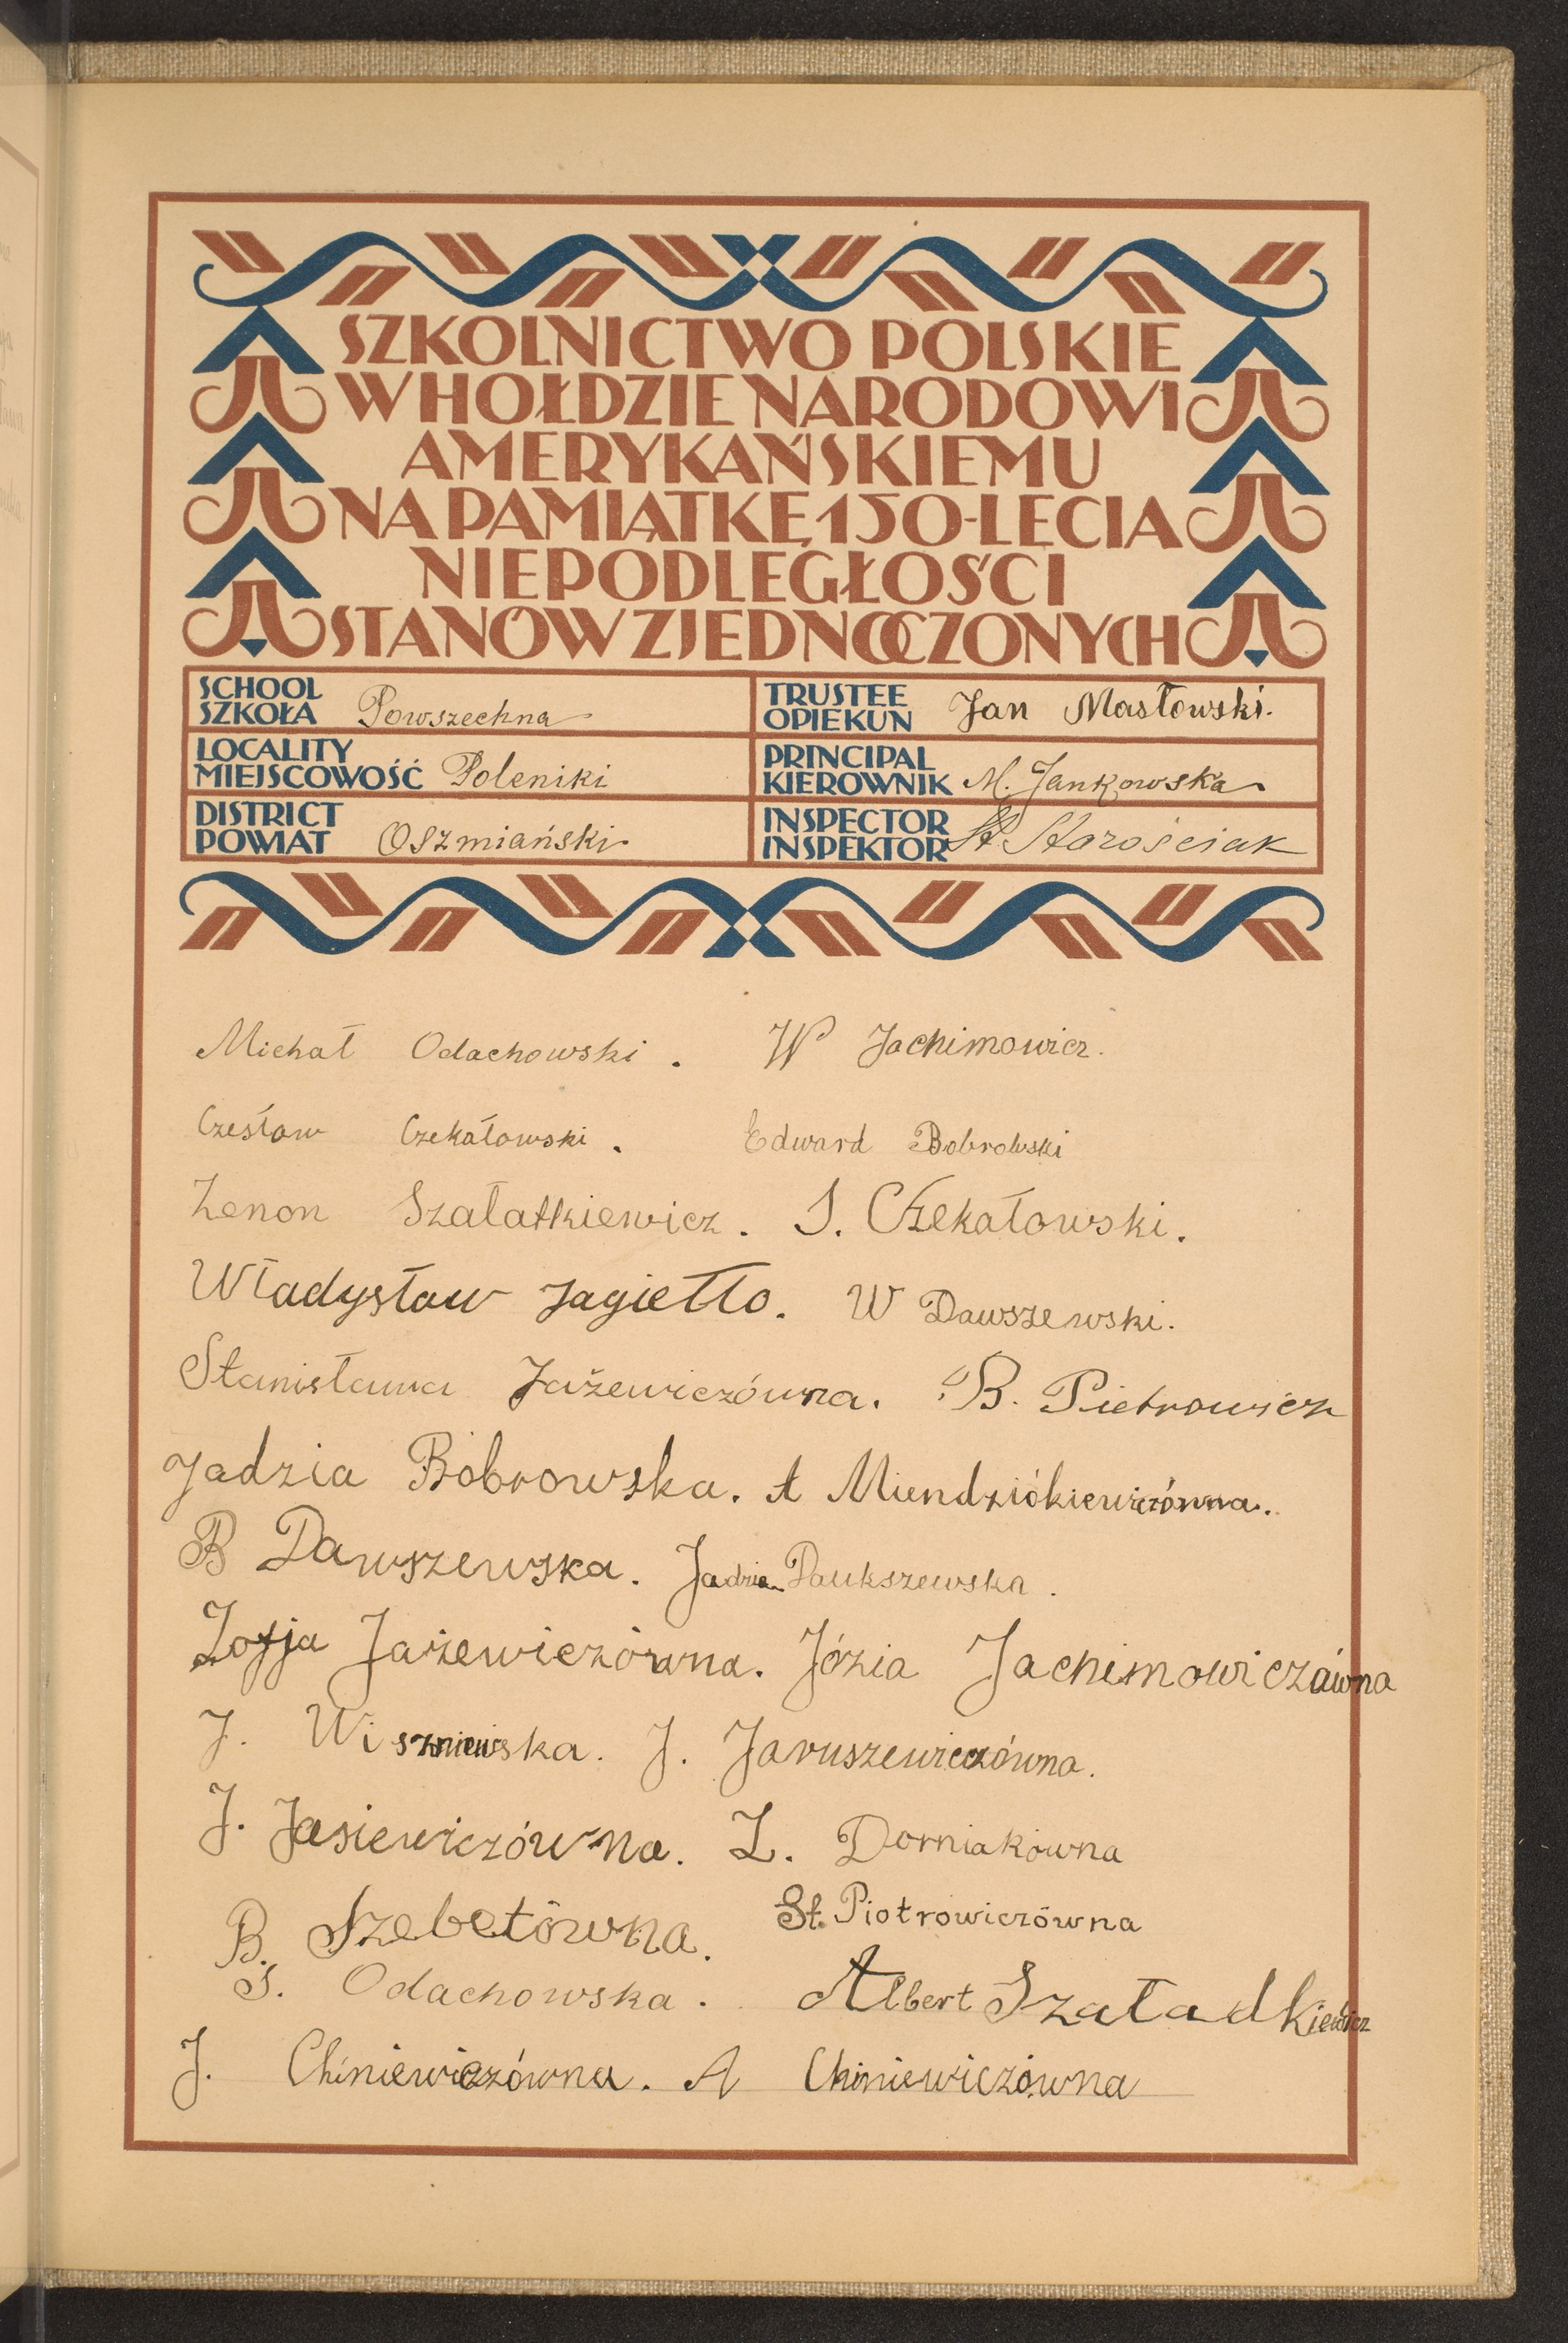 SZKOLNICTWO POLSKIE
W HOŁDZIE NARODOWI
AMERYKAŃSKIEMU
NA PAMIĄTKĘ 150-LECIA
NIEPODLEGŁOŚCI
STANÓW ZJEDNOCZONYCH
SCHOOL
SZKOŁA Powszechna
TRUSTEE
OPIEKUN Jan Masłowski.
LOCALITY
MIEJSCOWOŚĆ Poleniki
PRINCIPAL
KIEROWNIK M. Jankowska
DISTRICT
POWIAT Oszmiański
INSPECTOR
INSPEKTOR St Starościak
Michał Odachowski. W Jachimowicz.
Czesław Czekałowski. Edward Bobrowski
Zenon Szałatkiewicz. S. Czekałowski.
Władysław Jagiełło. W Dawszewski.
Stanisława Jażewiczówna. B. Pietrowicz
Jadzia Bobrowska. A Miendziókiewiczówna.
B Dawszewska. Jadzia Daukszewska.
Zofja Jażewiczówna. Józia Jachimowiczówna
J. Wiszniewska. J. Jaruszewiczówna.
J. Jasiewiczówna. Z. Dorniakówna
B. Szebetówna. St. Piotrowiczówna
S. Odachowska. Albert Szaładkiewicz
J. Chiniewiczówna. A Chiniewiczówna